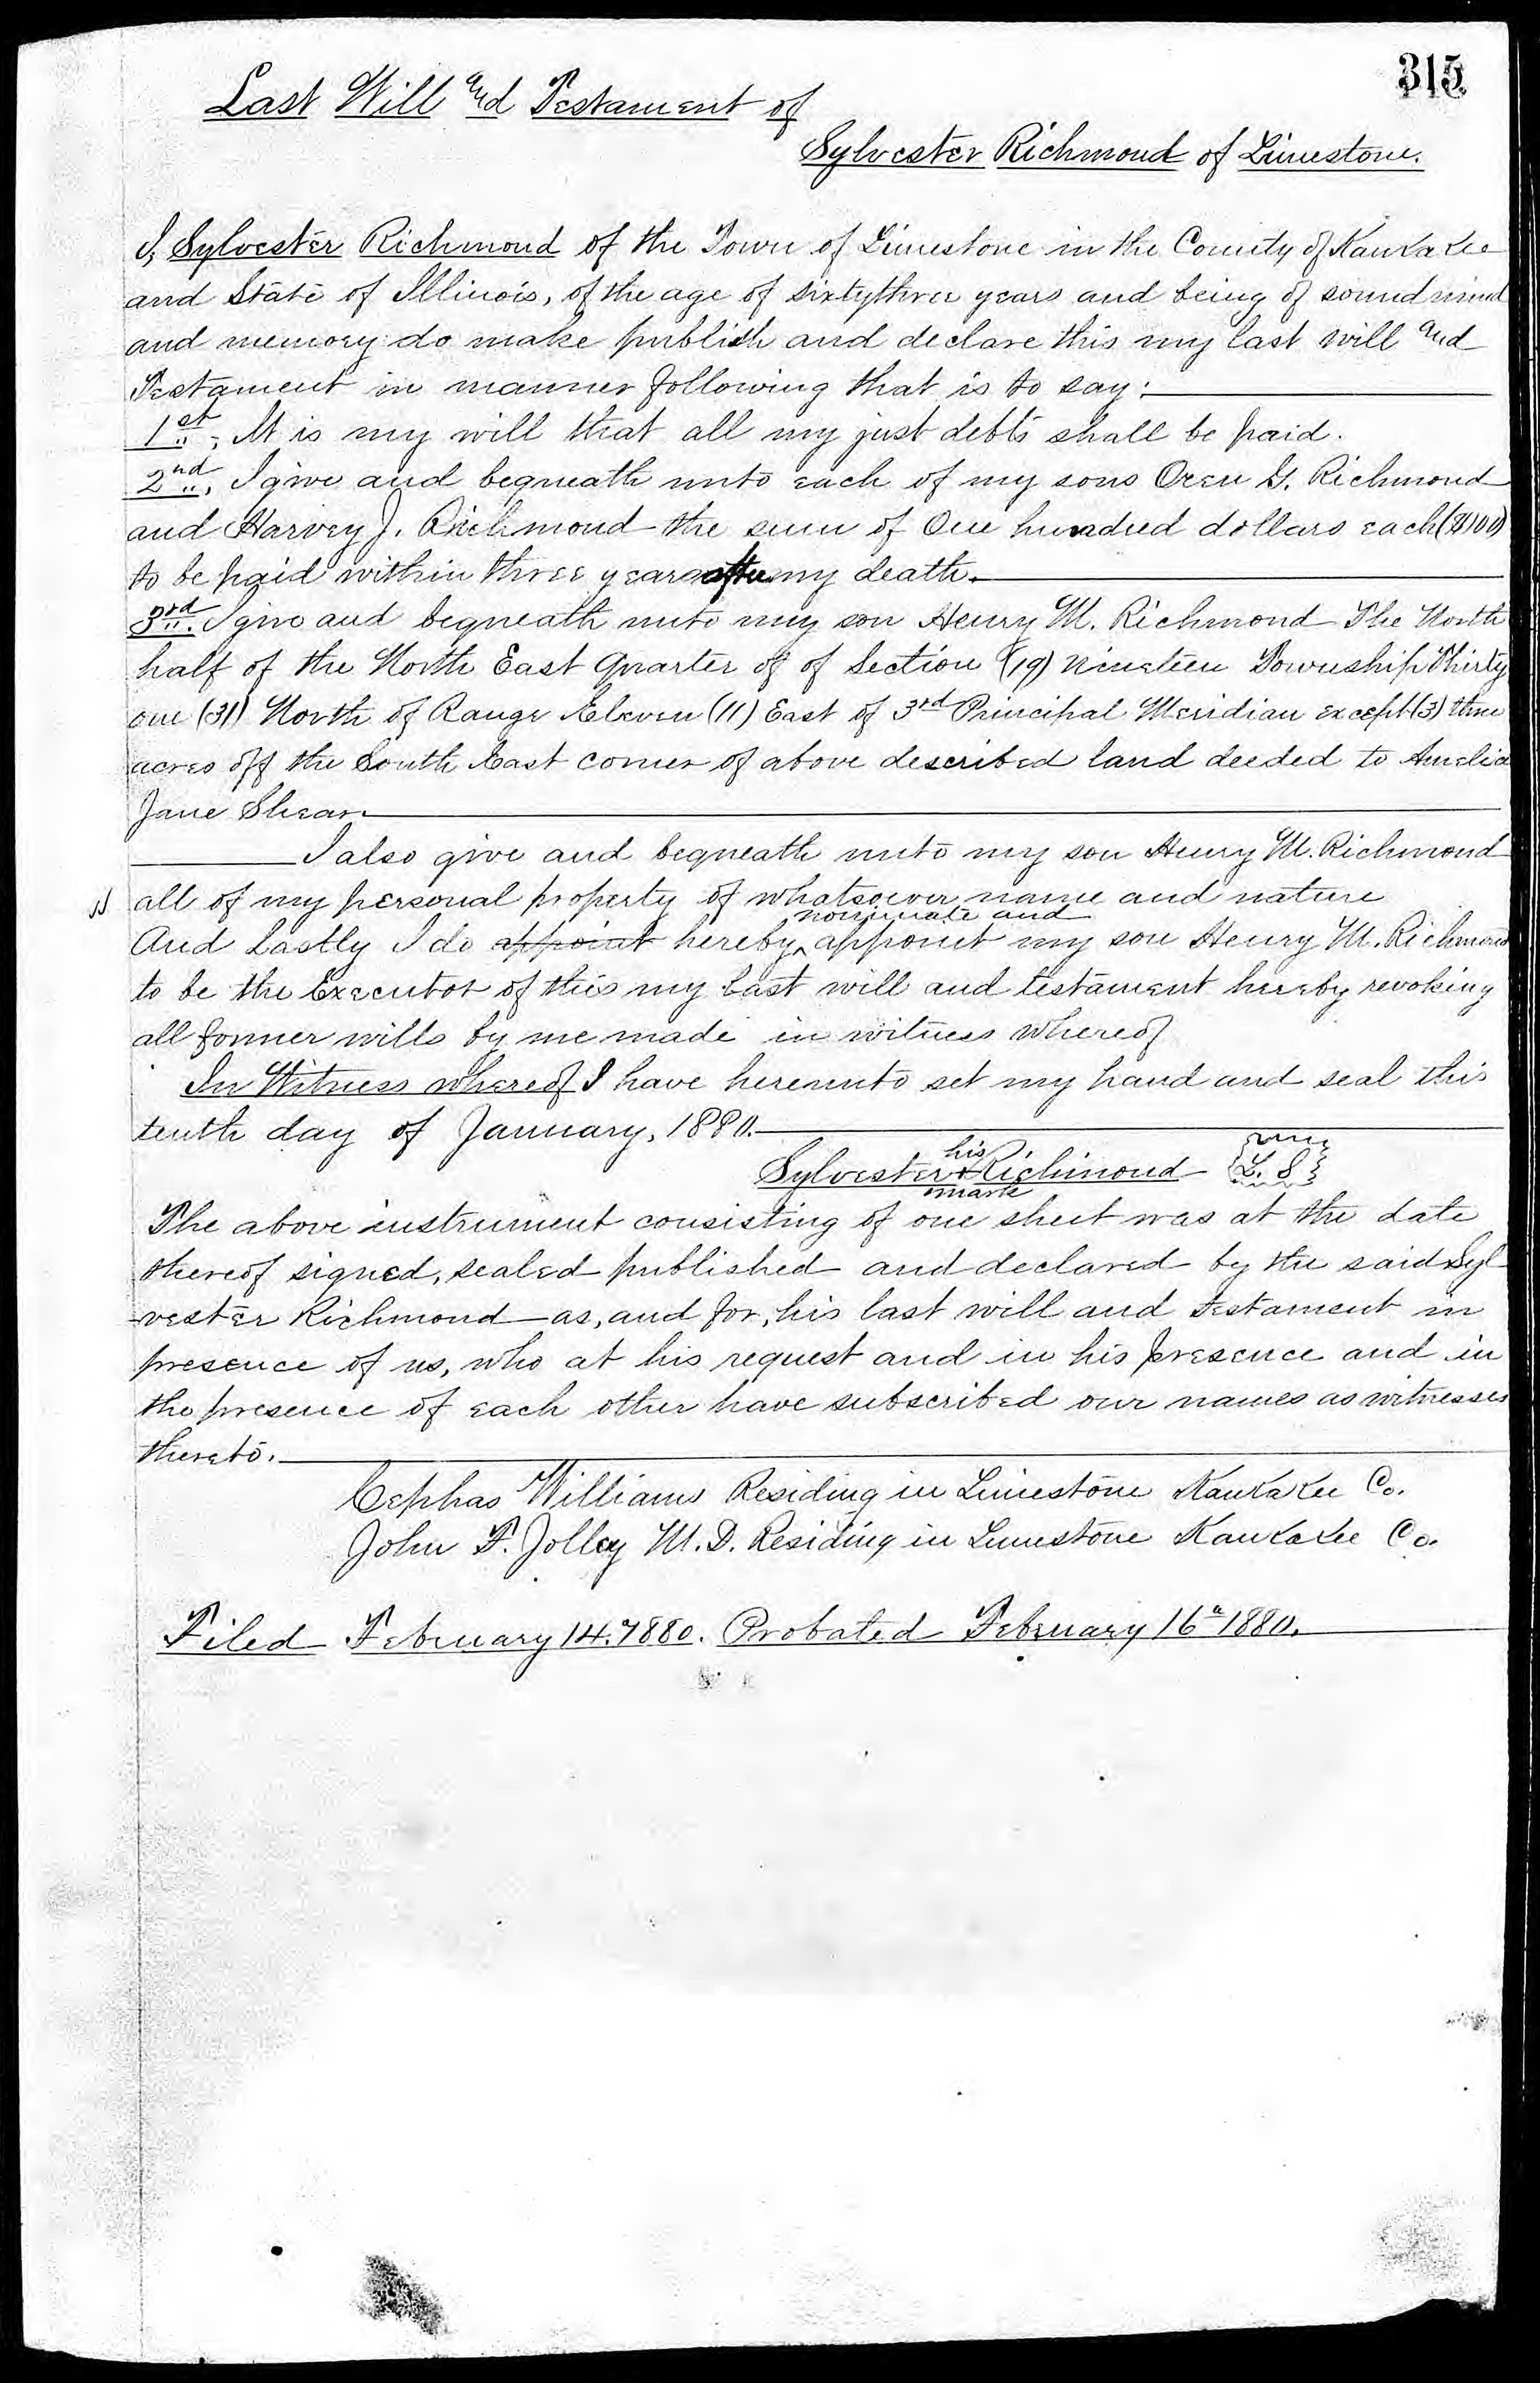 315
Last Will and Testament of
Sylvester Richmond of Limestone.
I, Sylvester Richmond of the Town of Limestone in the County of Kankakee
and State of Illinois, of the age of sixtythree years and being of sound mind
and memory do make publish and declare this my last will and
Testament in manner following that is to say:
1st. It is my will that all my just debts shall be paid.
2nd. I give and bequeath unto each of my sons Oren G. Richmond
and Harvey J. Richmond the sum of One hundred dollars each ($100)
to be paid within three years after my death.
3rd. I give and bequeath unto my son Henry M. Richmond The North
half of the North East Quarter of of Section (19) Nineteen Township Thirty
one (31) North of Range Eleven (11) East of 3rd Principal Meridian except (3) three
acres off the South East corner of above described land deeded to Amelia
Jane Shear.
I also give and bequeath unto my son Henry M. Richmond
all of my personal property of whatsoever name and nature
nominate and
And Lastly I do appoint hereby ^ appoint my son Henry M. Richmond
to be the Executor of this my last will and testament hereby revoking
all former wills by me made in witness whereof
In Witness whereof I have hereunto set my hand and seal this
tenth day of January, 1880.
his
Sylvester x Richmond L. S
mark
The above instrument consisting of one sheet was at the date
thereof signed, sealed published and declared by the said Syl
vester Richmond as, and for, his last will and testament in
presence of us, who at his request and in his presence and in
the presence of each other have subscribed our names as witnesses
thereto.
Cephas Williams Residing in Limestone Kankakee Co.
John F. Jolley M. D. Residing in Limestone Kankakee Co.
Filed February 14. 1880. Probated February 16" 1880.